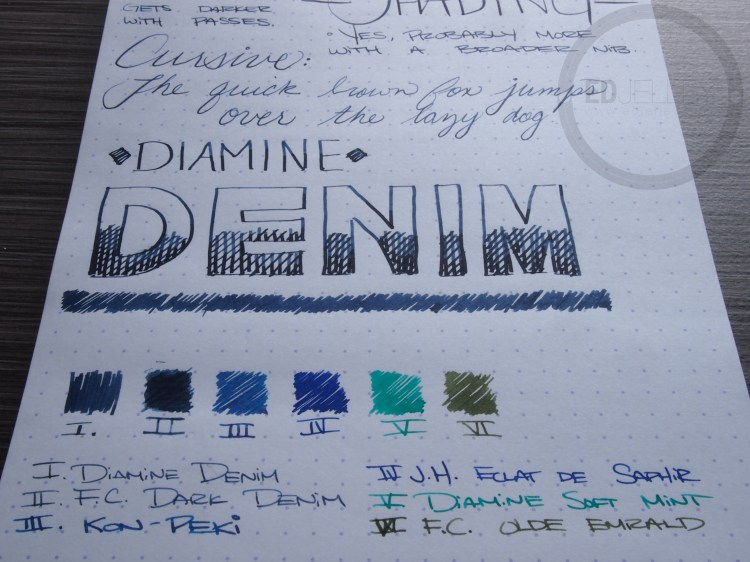 GETS DARKER
WITH PASSES.
SHADING
• YES, PROBABLY MORE
WITH A BROADER NIB.
Cursive:
The quick brown fox jumps
over the lazy dog
ED JELLEY
DIAMINE
DENIM
I. II III IV V VI
I. DIAMINE DENIM
II F.C. DARK DENIM
III. KON-PEKI
IV J.H. ECLAT DE SAPHIR
V DIAMINE SOFT MINT
VI F.C. OLDE EMIRALD